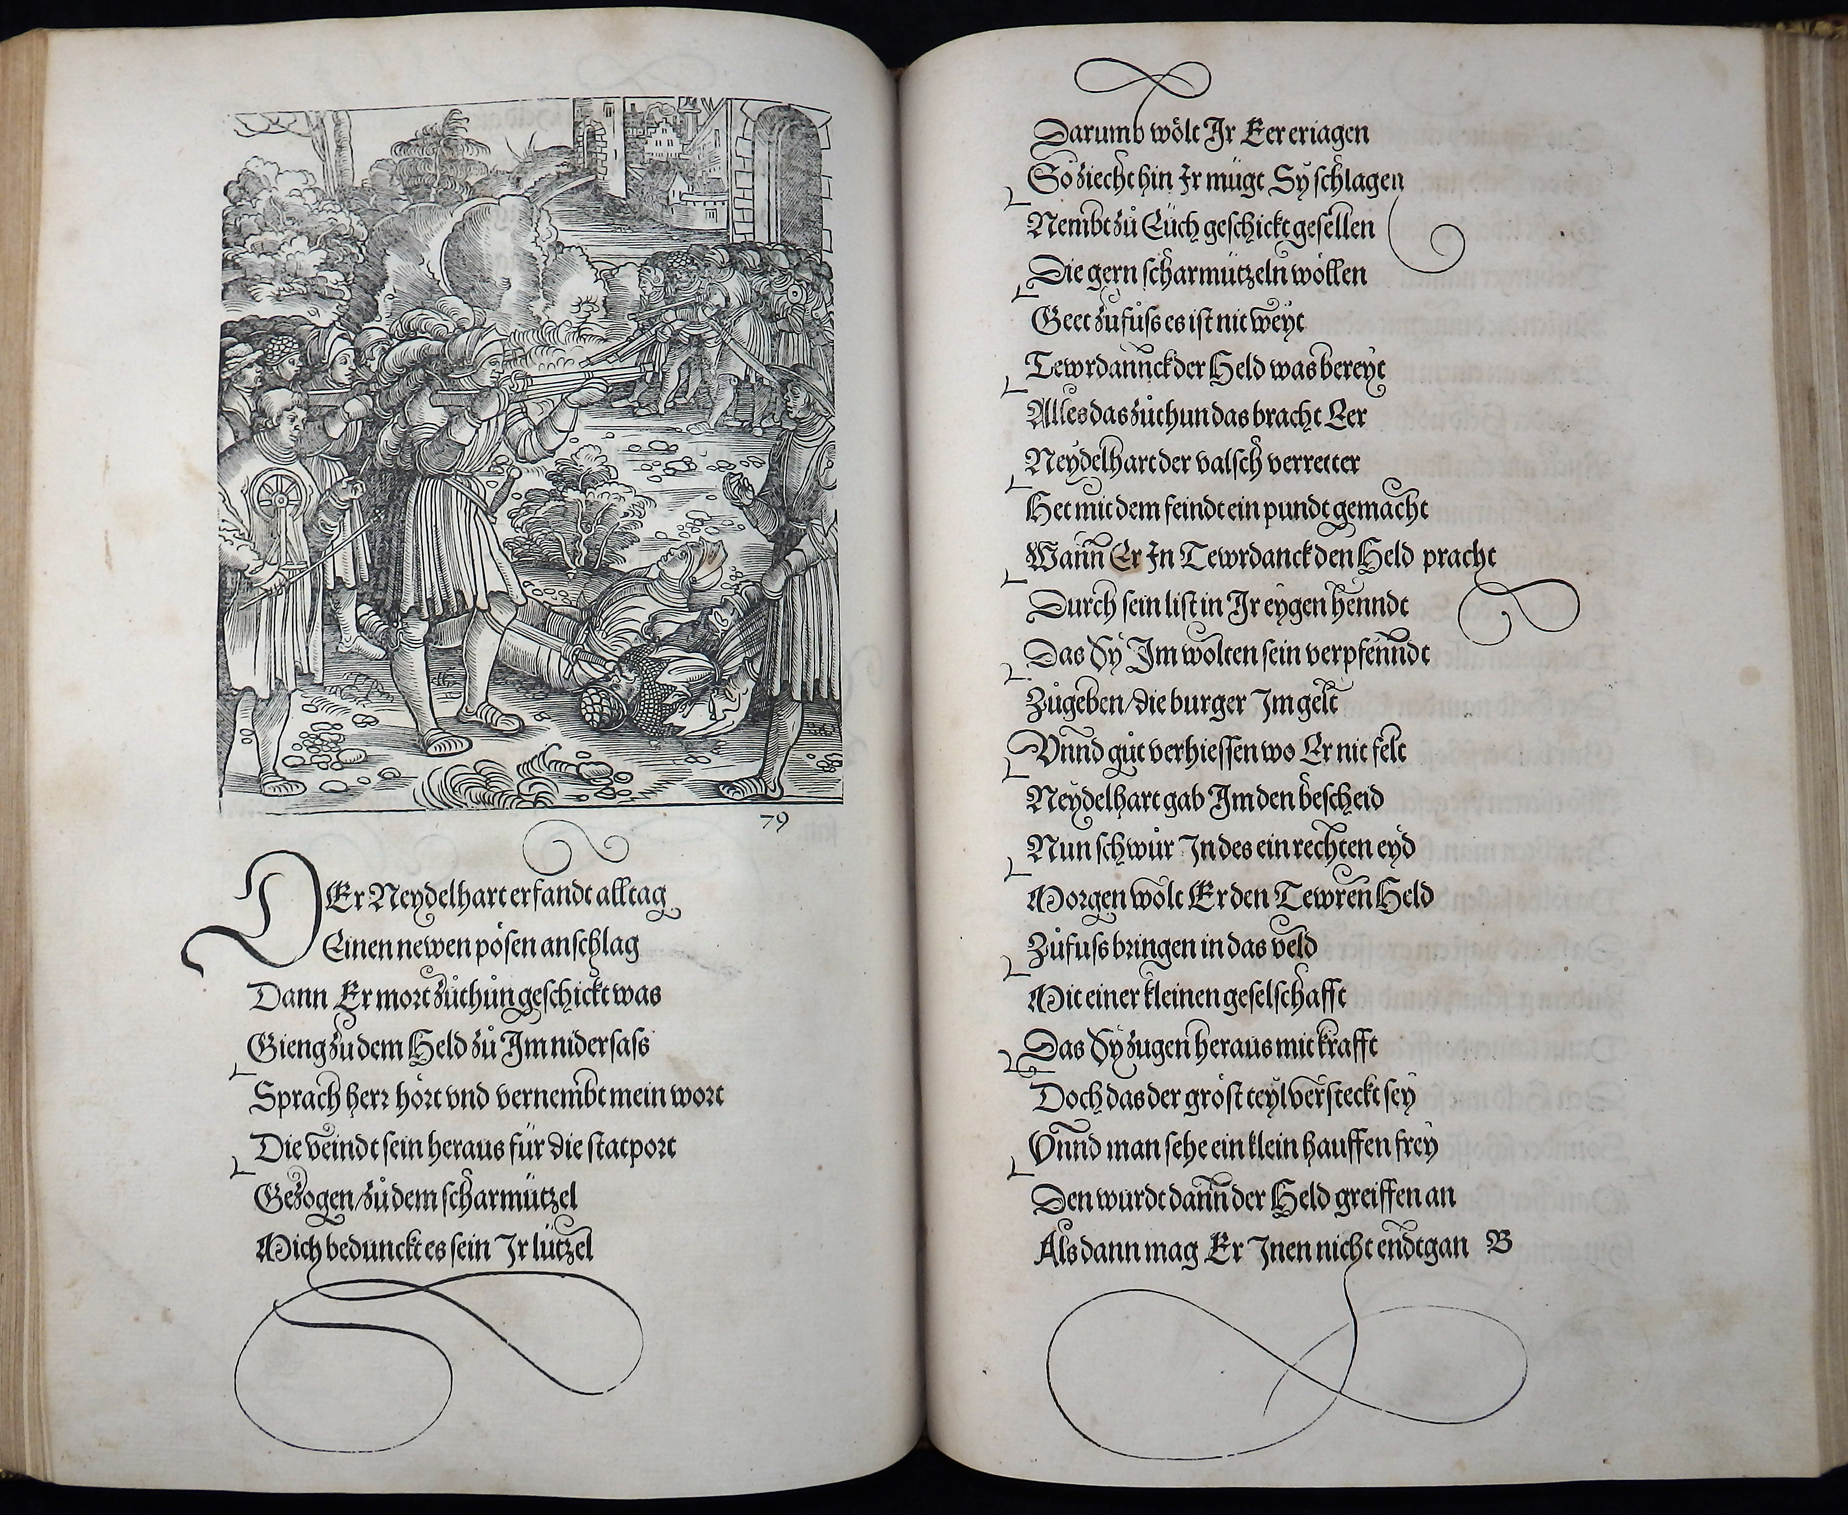 79
DEr Neydelhart erfandt alltag
Einen newen pösen anschlag
Dann Er mort zůthůn geschickt was
Gieng zů dem Held zů Im nidersass
Sprach herr hört vnd vernembt mein wort
Die veindt sein heraus für die statport
Gezogen/zů dem scharmützel
Mich bedunckt es sein Ir lützel
Darumb wölt Ir Eer eriagen
So ziecht hin Ir mügt Sy schlagen
Nembt zů Eüch geschickt gesellen
Die gern scharmützeln wöllen
Geet zů fuss es ist nit weyt
Tewrdannck der Held was bereyt
Alles das zůthun das bracht Eer
Neydelhart der valsch verretter
Het mit dem feindt ein pundt gemacht
Wann Er In Tewrdanck den Held pracht
Durch sein list in Ir eygen henndt
Das Sy Im wolten sein verpfenndt
Zůgeben/die burger Im gelt
Vnnd gůt verhiessen wo Er nit felt
Neydelhart gab Im den bescheid
Nun schwůr In des ein rechten eyd
Morgen wolt Er den Tewren Held
Zůfuss bringen in das veld
Mit einer kleinen geselschafft
Das Sy zugen heraus mit krafft
Doch das der gröst teyl versteckt sey
Vnnd man sehe ein klein hauffen frey
Den wurdt dann der Held greiffen an
Als dann mag Er Inen nicht endtgan B